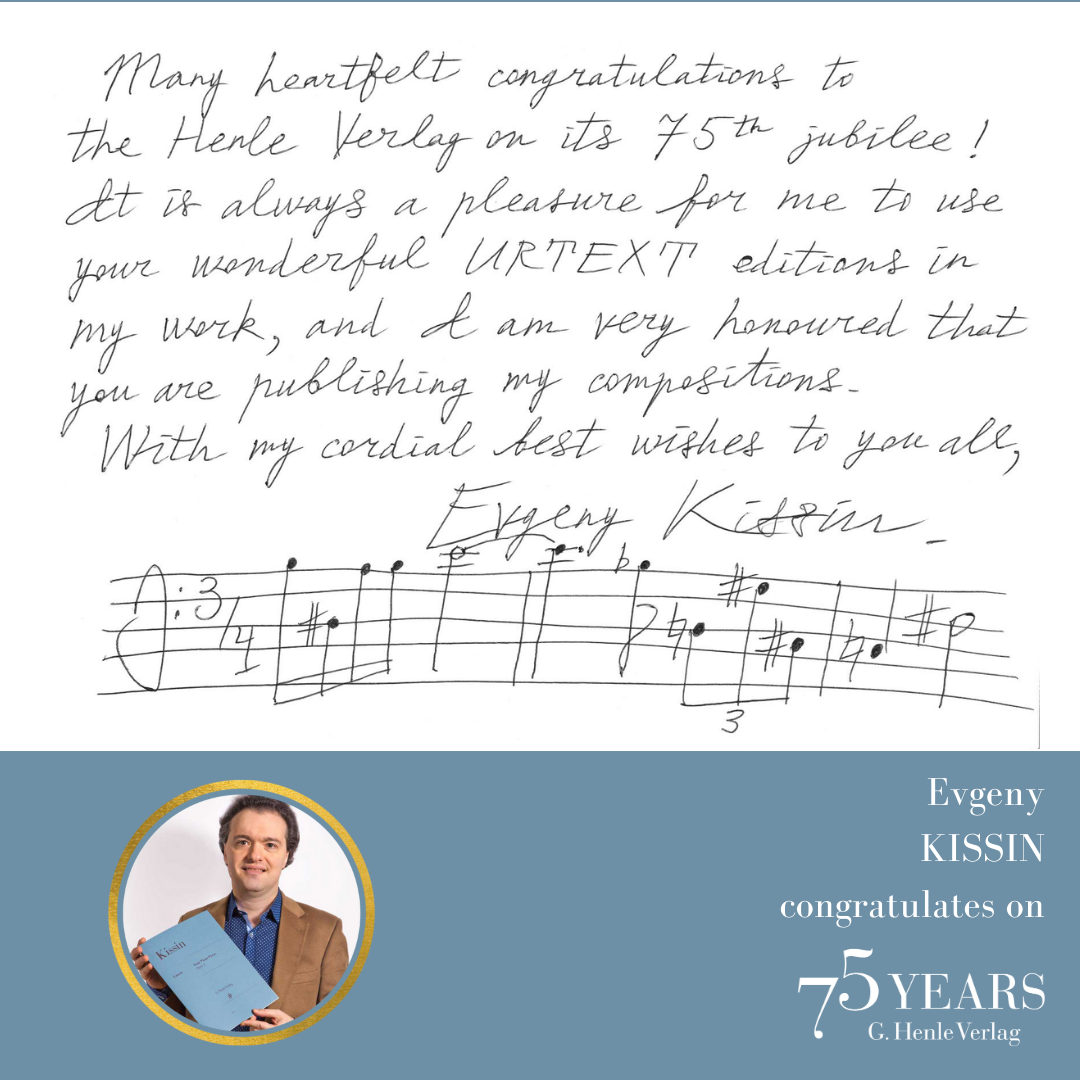 Many heartfelt congratulations to
the Henle Verlag on its 75th jubilee!
It is always a pleasure for me to use
your wonderful URTEXT editions in
my work, and I am very honoured that
you are publishing my compositions.
With my cordial best wishes to you all,
Evgeny Kissin.
3/4
3
Kissin
Evgeny
KISSIN
congratulates on
75 YEARS
G. Henle Verlag